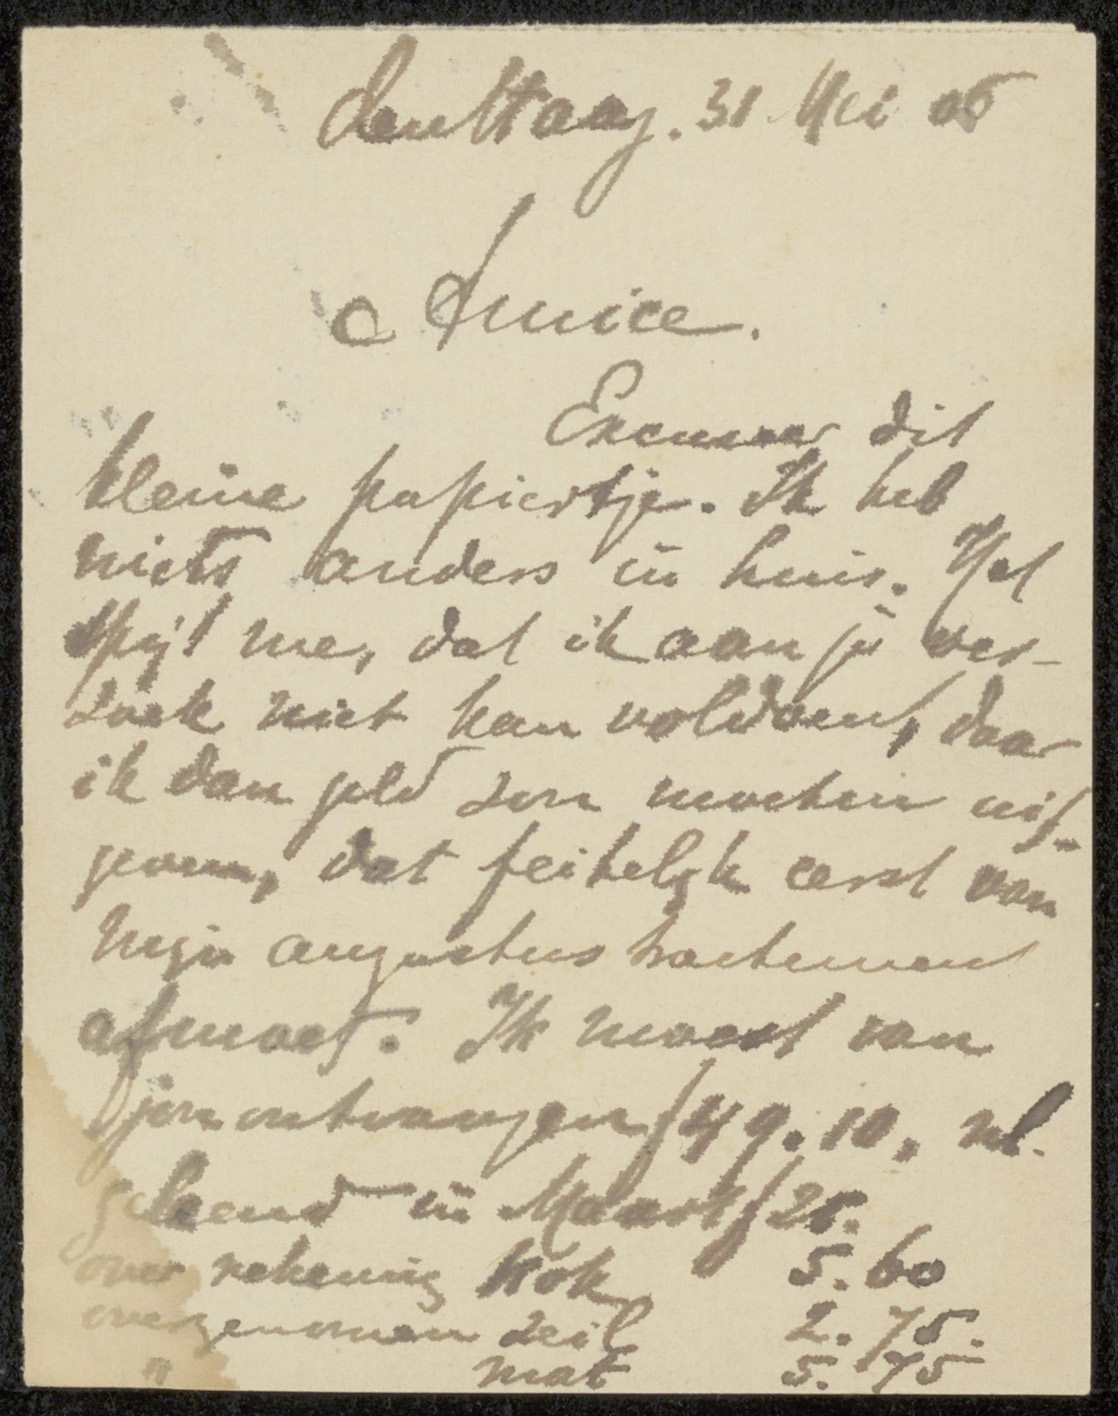 Den Haag. 31 Mei 05
o Amice.
Excuseer dit
kleine papiertje. Ik heb
niets anders in huis. Het
spijt me, dat ik aan je ver-
zoek niet kan voldoen, daar
ik dan geld zou moeten uit-
geven, dat feitelijk eerst van
mijn augustus tractement
afmoet. Ik moest van
jou ontvangen f 49.10. nl.
geleend in Maart f 25.
over rekening Kok 5.60
overgenomen zeil 2.75.
" mat 5.75